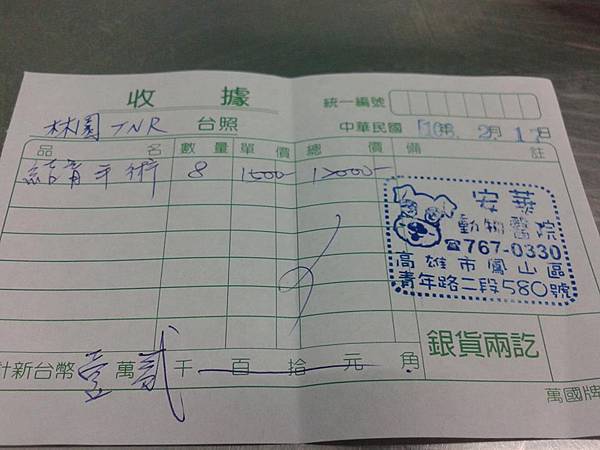 收據
統一編號
林園 TNR 台照
中華民國 年 2月17日
品名 數量 單價 總價 備註
結紮手術 8 1500 12000
安葵
動物醫院
☎767-0330
高雄市鳳山區
青年路二段580號
銀貨兩訖
計新台幣壹萬貳千百拾元角
萬國牌